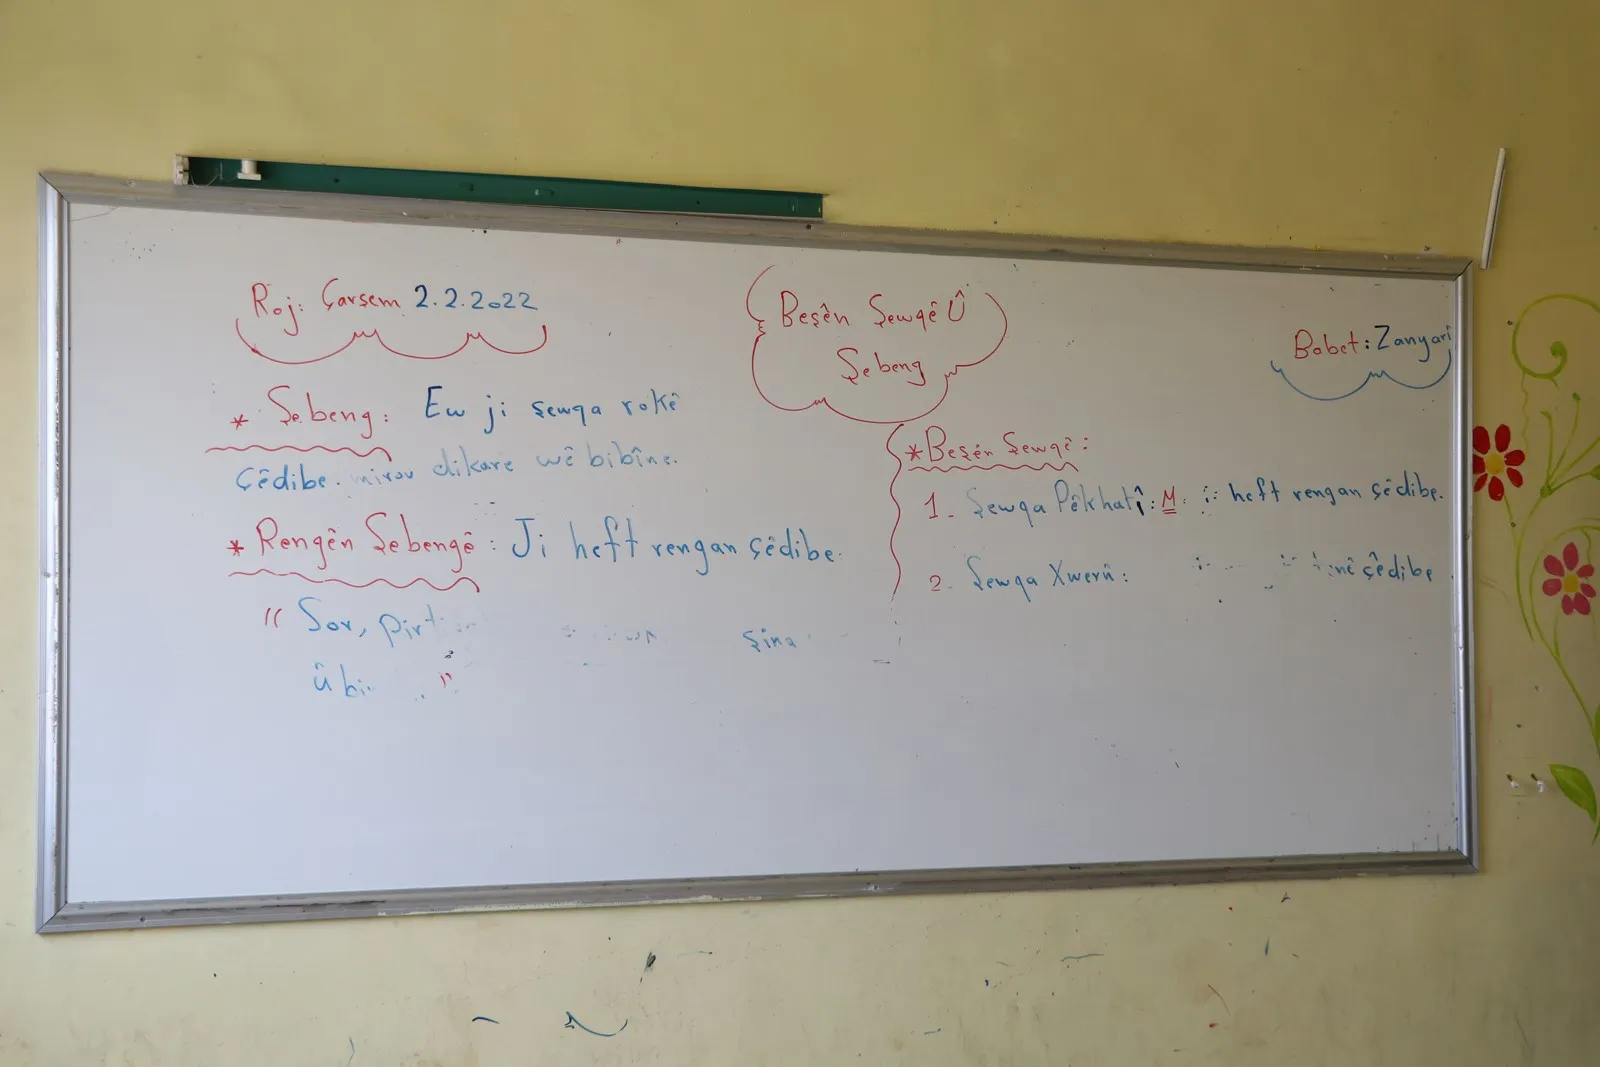 Roj: Çarşem 2.2.2022
Beşên Şewqê Û
Şebeng
Babet: Zanyarî
* Şebeng: Ew ji şewqa rokê
çêdibe. mirov dikare wê bibîne.
* Rengên Şebengê: Ji heft rengan çêdibe.
" Sor, şîna
û "
* Beşên Şewqê:
1. Şewqa Pêkhatî: M. heft rengan çêdibe.
2. Şewqa Xwerû: çêdibe